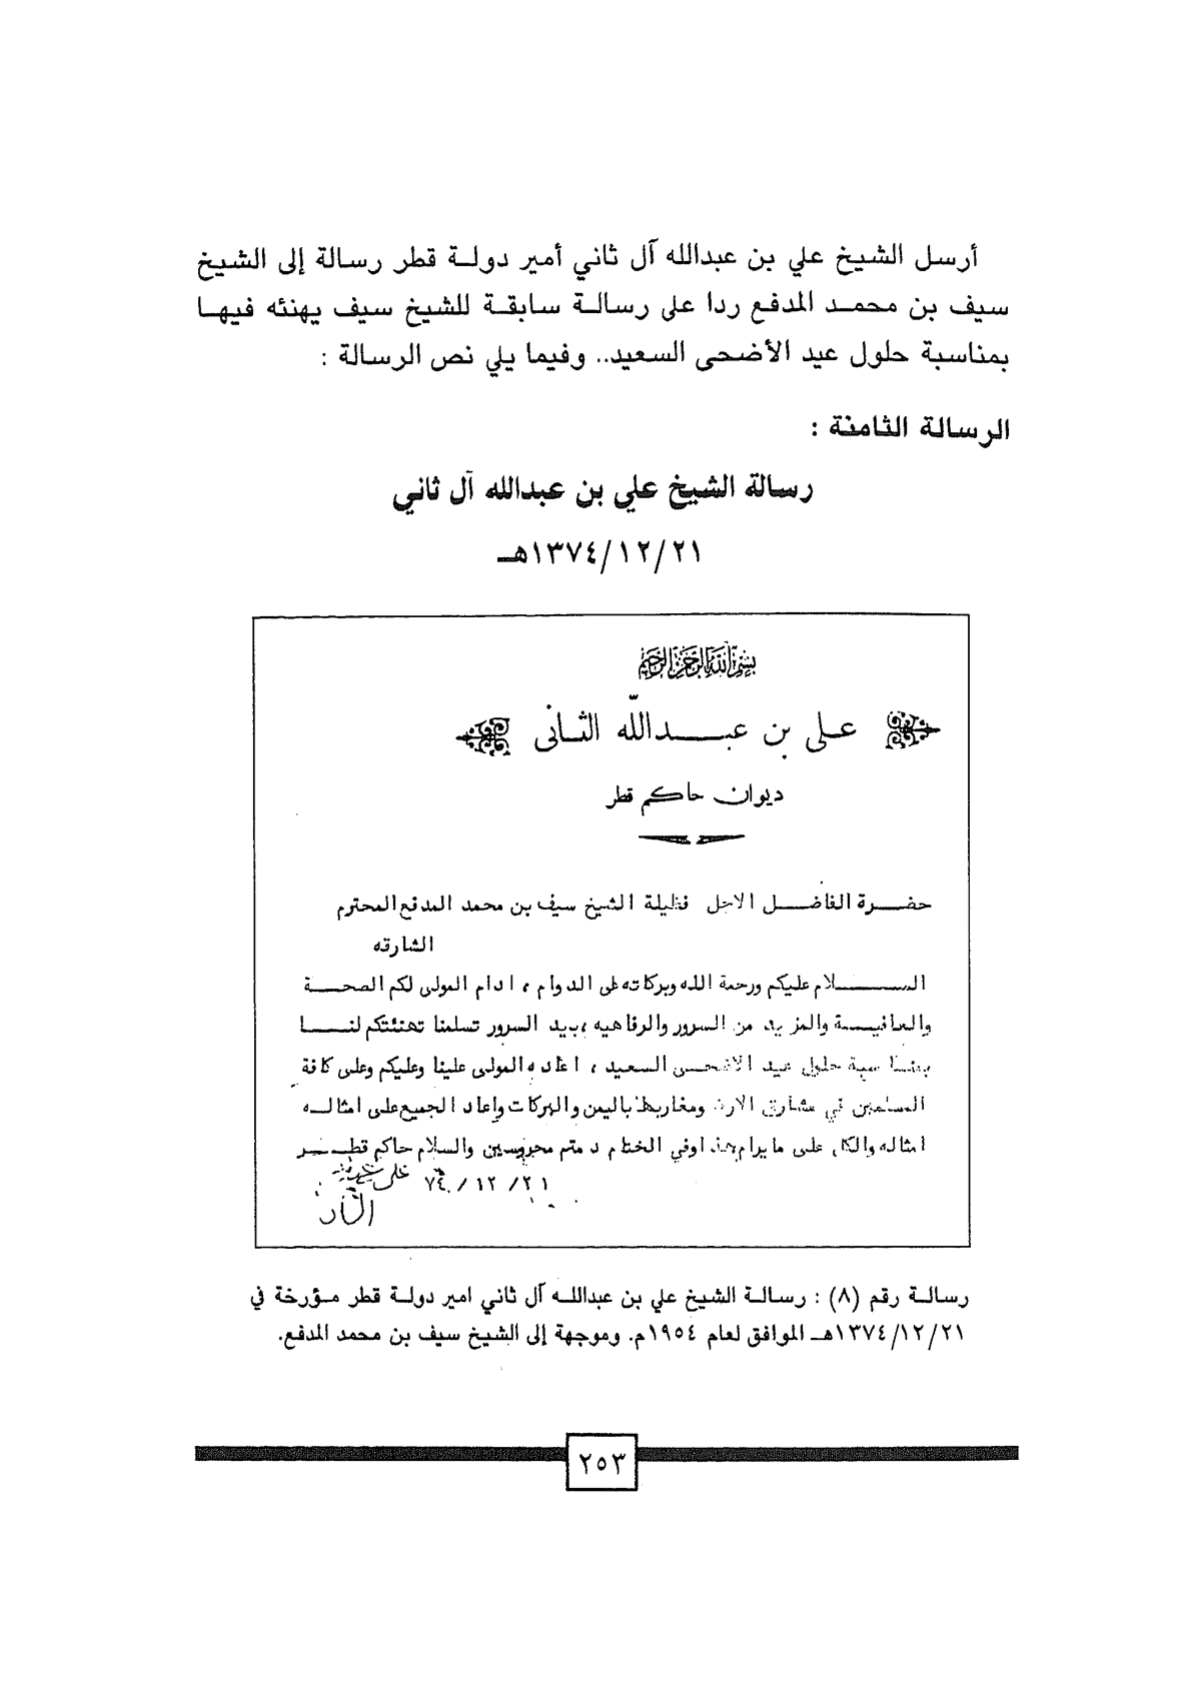 أرسل الشيخ علي بن عبدالله آل ثاني أمير دولة قطر رسالة إلى الشيخ
سيف بن محمد المدفع ردا على رسالة سابقة للشيخ سيف يهنئه فيها
بمناسبة حلول عيد الأضحى السعيد.. وفيما يلي نص الرسالة :
الرسالة الثامنة :
رسالة الشيخ علي بن عبدالله آل ثاني
١٣٧٤/١٢/٢١هـ
بسم الله الرحمن الرحيم
علي بن عبدالله الثاني
ديوان حاكم قطر
حضرة الفاضل الاجل فظيلة الشيخ سيف بن محمد المدفع المحترم
الشارقه
السلام عليكم ورحمة الله وبركاته على الدوام ، ادام المولى لكم الصحة
والعافية والمزيد من السرور والرفاهيه ،بيد السرور تسلمنا تهنئتكم لنا
بمناسبة حلول عيد الاضحى السعيد ، اعاده المولى علينا وعليكم وعلى كافة
المسلمين في مشارق الارض ومغاربها باليمن والبركات واعاد الجميع على امثاله
امثاله والكل على ما يرام هذا وفي الختام دمتم محروسين والسلام حاكم قطر
٢١/ ١٢/ ٧٤ علي
الثاني
رسالة رقم (٨) : رسالة الشيخ علي بن عبدالله آل ثاني امير دولة قطر مؤرخة في
١٣٧٤/١٢/٢١هـ الموافق لعام ١٩٥٤م. وموجهة إلى الشيخ سيف بن محمد المدفع.
٢٥٣